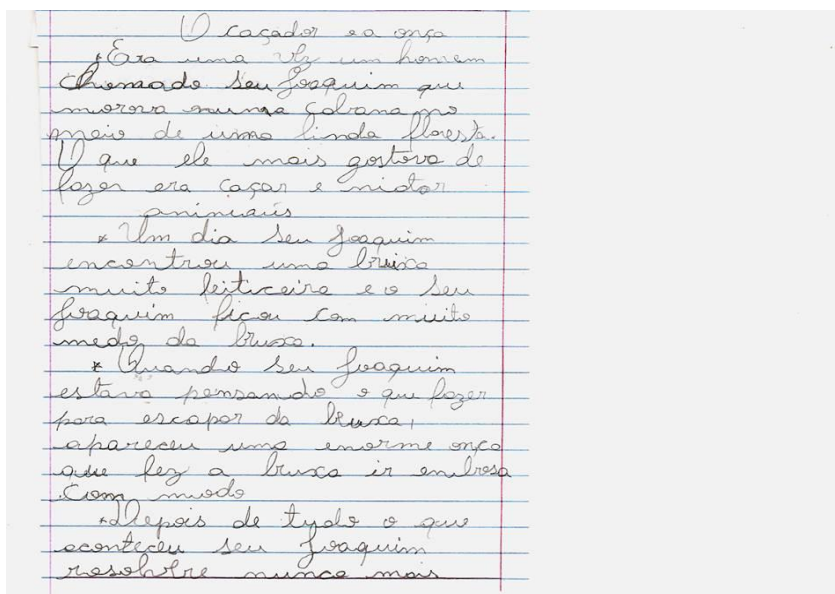 O caçador ea onça
*Era uma vez um homem
Chamado seu Joaquim que
morava numa cabana no
meio de uma linda floresta.
O que ele mais gostava de
fazer era caçar e matar
animais
* Um dia seu Joaquim
encontrou uma bruxa
muito feiticeira e o seu
Joaquim ficou com muito
medo da bruxa.
* Quando seu Joaquim
estava pensando o que fazer
para escapar da bruxa,
apareceu uma enorme onça
que fez a bruxa ir embora
com medo
*Depois de tudo o que
aconteceu seu Joaquim
nunca mais